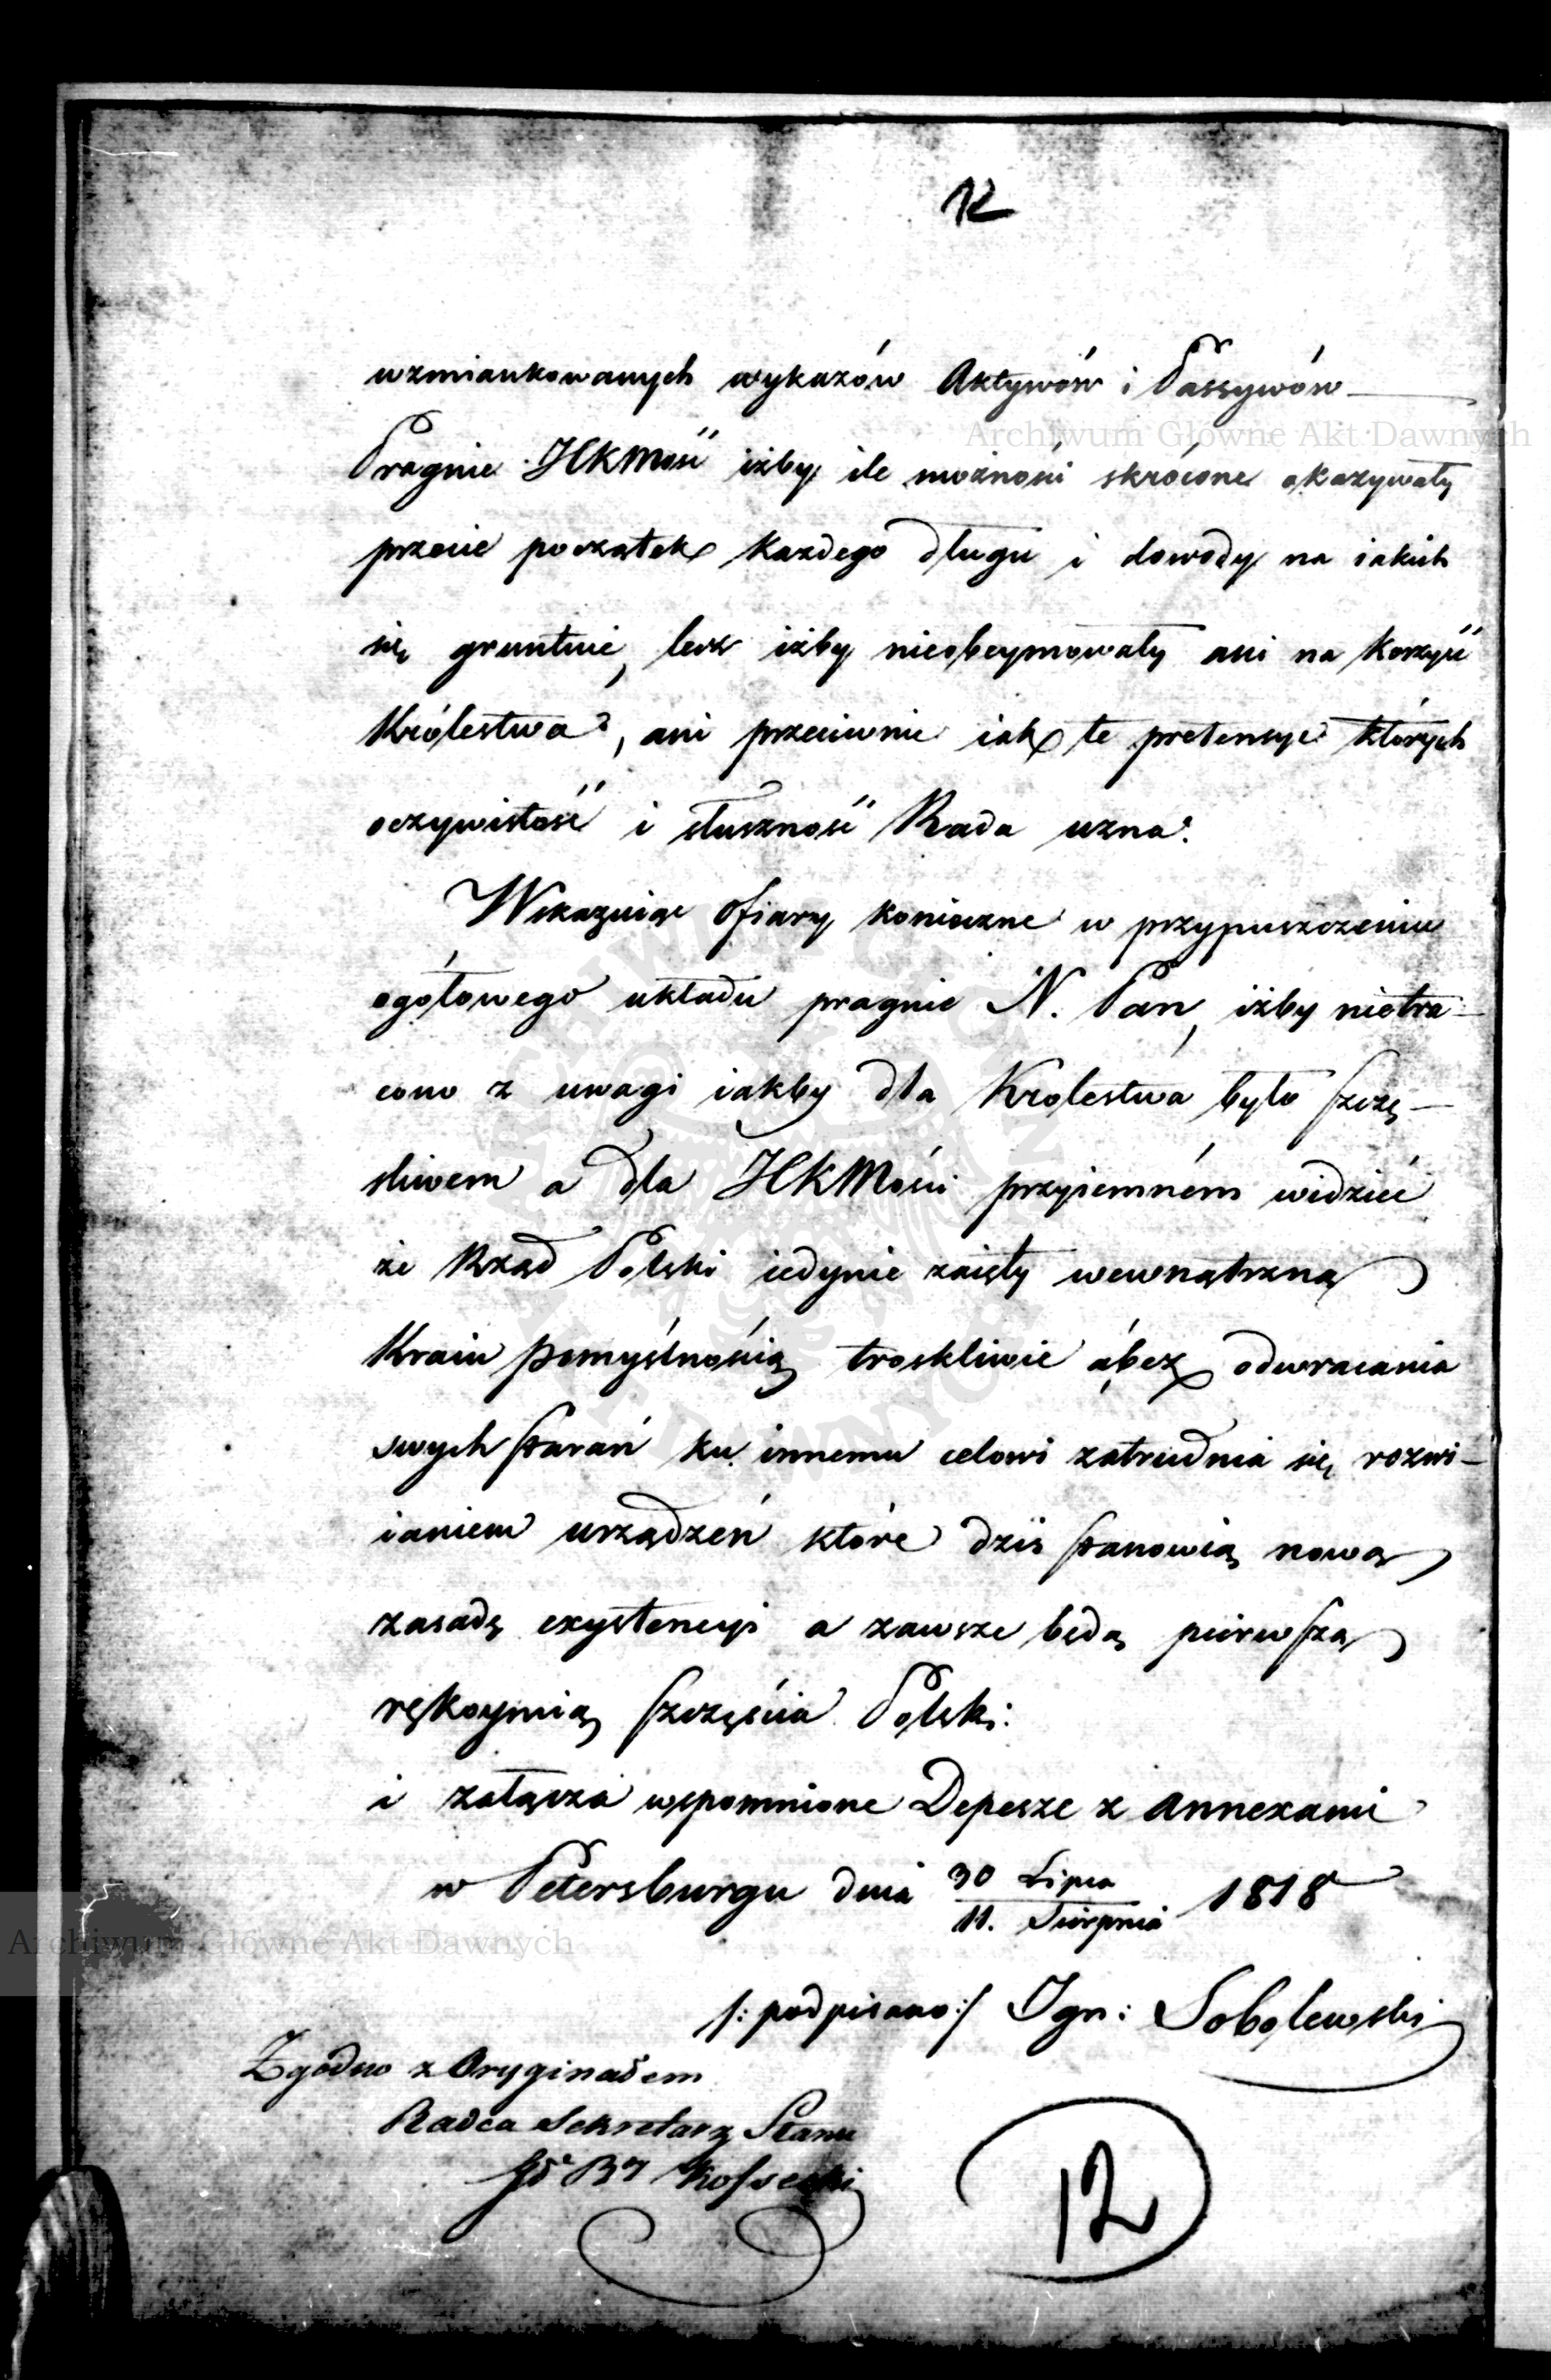 12
wzmiankowanych wykazów Aktywów i Passywów
Archiwum Główne Akt Dawnych
Pragnie JCKMość iżby ile możności skrócone okazywały
przecie początek każdego długu i dowody na iakich
się gruntuie, lecz iżby nieobeymowały ani na korzyść
Królestwa, ani przeciwnie iak te pretensye których
oczywistość i słuszność Rada uzna.
Wskazuiąc ofiary konieczne w przypuszczeniu
ogółowego układu pragnie N. Pan, iżby nietra-
cono z uwagi iakby dla Krolestwa było szczę-
sliwem a dla JCKMości przyiemném widzieć
że Rząd Polski iedynie zaięty wewnątrzną
Kraiu pomyślnością troskliwie a bez odwracania
swych starań ku innemu celowi zatrudnia się rozwi-
ianiem urządzeń które dziś stanowią nową
zasadę exystencyi a zawsze będą pierwszą
rękoymią szczęścia Polski.
i załącza wspomnione Depesze z annexami
w Petersburgu dnia 30 Lipca / 11. Sierpnia 1818
Archiwum Główne Akt Dawnych
/: podpisano :/ Ign: Sobolewski
Zgodno z Oryginałem
Radca Sekretarz Stanu
Kossecki
12